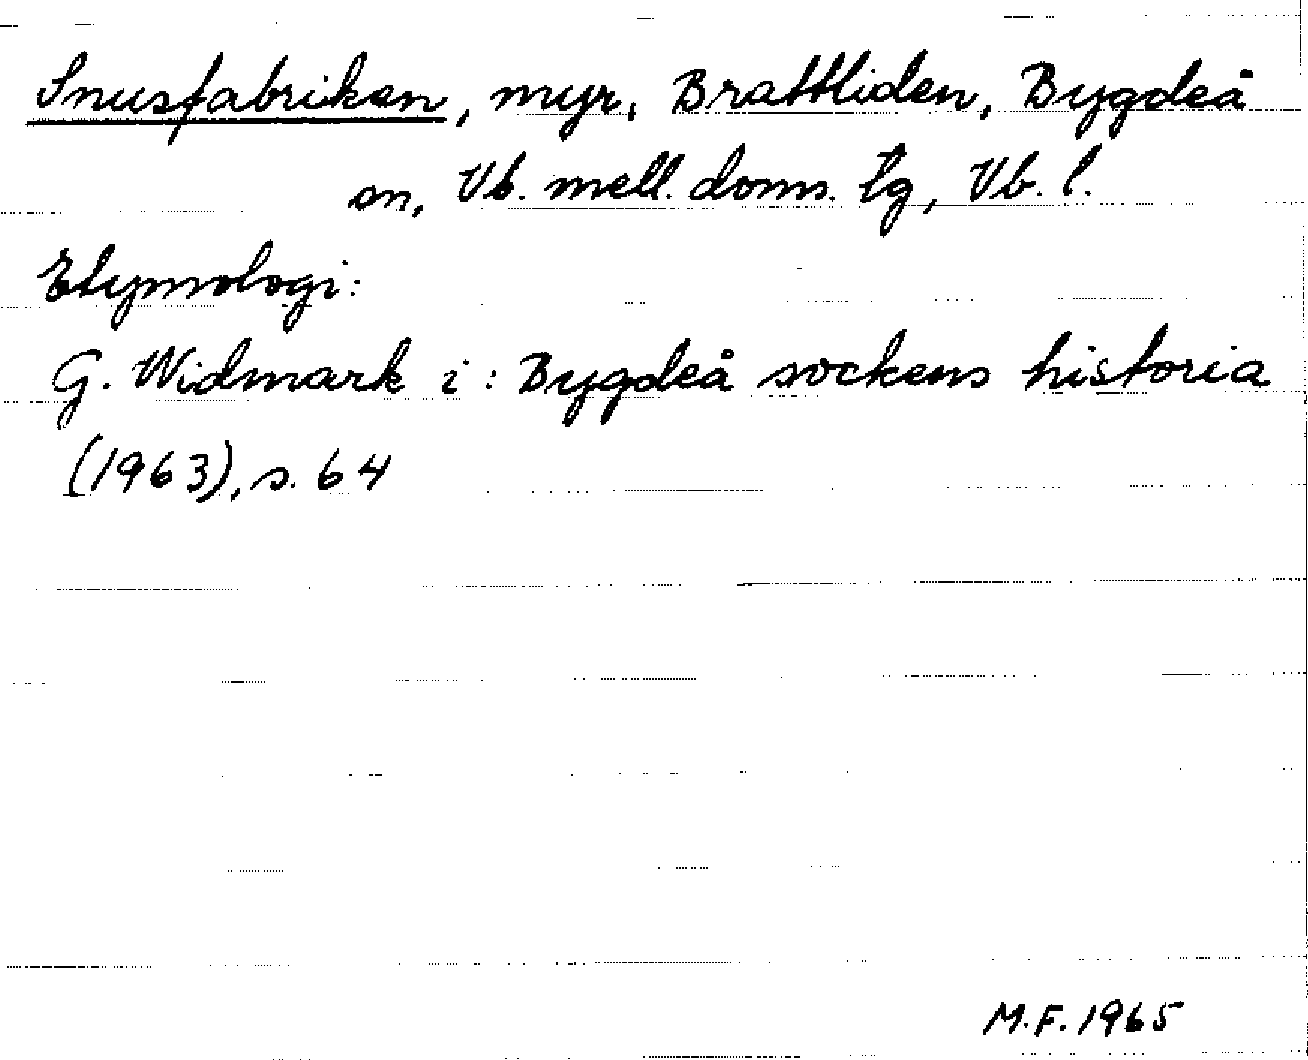 Snusfabriken, myr, Brattliden, Bygdeå
sn, Vb. mell. doms. tg, Vb. l.
Etymologi:
G. Widmark i: Bygdeå sockens historia
(1963), s. 64
M.F. 1965